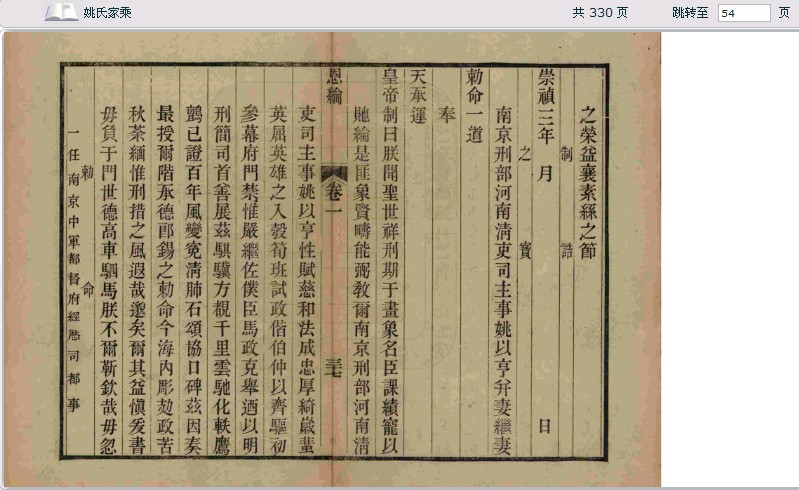 姚氏家乘
共 330 页
跳转至 54 页
之榮益襄素絲之節
制 誥
崇禎三年 月 日
之 寶
南京刑部河南清吏司主事姚以亨幷妻繼妻
勅命一道
奉
天承運
皇帝制曰朕聞聖世祥刑期于畫象名臣課績寵以
貤綸是匪象賢疇能弼敎爾南京刑部河南淸
恩綸
卷一
三七
吏司主事姚以亨性賦慈和法成忠厚綺歲蜚
英屈英雄之入彀筍班試政偕伯仲以齊驅初
參幕府門禁惟嚴繼佐僕臣馬政克舉迺以明
刑簡司首善展茲騏驥方覩千里雲馳化軼鷹
鸇已證百年風變寃淸肺石頌協口碑茲因奏
最授爾階承德郎錫之勅命今海內彫攰政苦
秋荼緬惟刑措之風遐哉邈矣爾其益愼爰書
毋負于門世德高車駟馬朕不爾靳欽哉毋忽
勅 命
一任南京中軍都督府經歷司都事